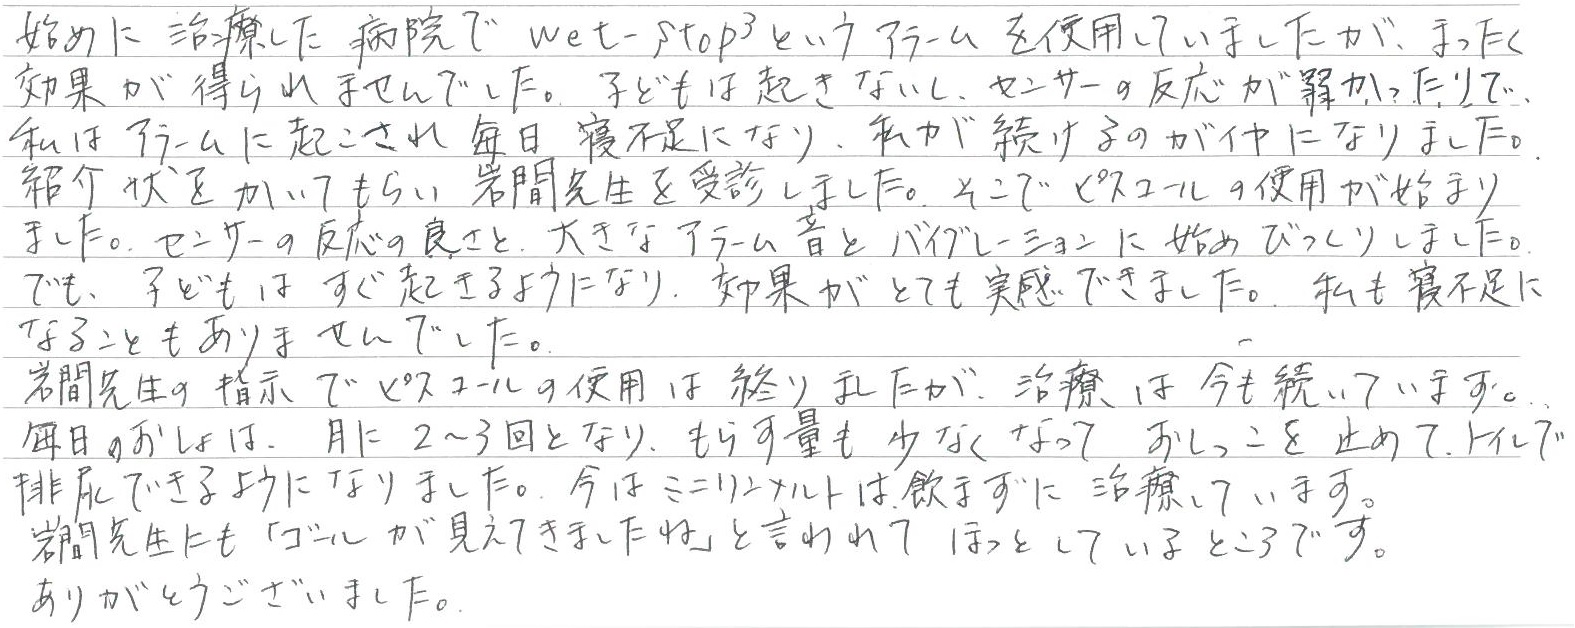 始めに治療した病院でwet-stop³というアラームを使用していましたが、まったく
効果が得られませんでした。子どもは起きないし、センサーの反応が弱かったりで、
私はアラームに起こされ毎日寝不足になり、私が続けるのがイヤになりました。
紹介状をかいてもらい岩間先生を受診しました。そこでピスコールの使用が始まり
ました。センサーの反応の良さと、大きなアラーム音とバイブレーションに始めびっくりしました。
でも、子どもはすぐ起きるようになり、効果がとても実感できました。私も寝不足に
なることもありませんでした。
岩間先生の指示でピスコールの使用は終りましたが、治療は今も続いています。
毎日のおしょは、月に2~3回となり、もらす量も少なくなっておしっこを止めて、トイレで
排尿できるようになりました。今はミニリンメルトは飲まずに治療しています。
岩間先生にも「ゴールが見えてきましたね」と言われてほっとしているところです。
ありがとうございました。